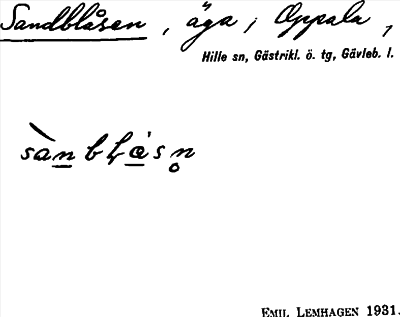 Sandblåsen, äga, Oppala,
Hille sn, Gästrikl. ö. tg, Gävleb. l.
sànblåsn̥
EMIL LEMHAGEN 1931.